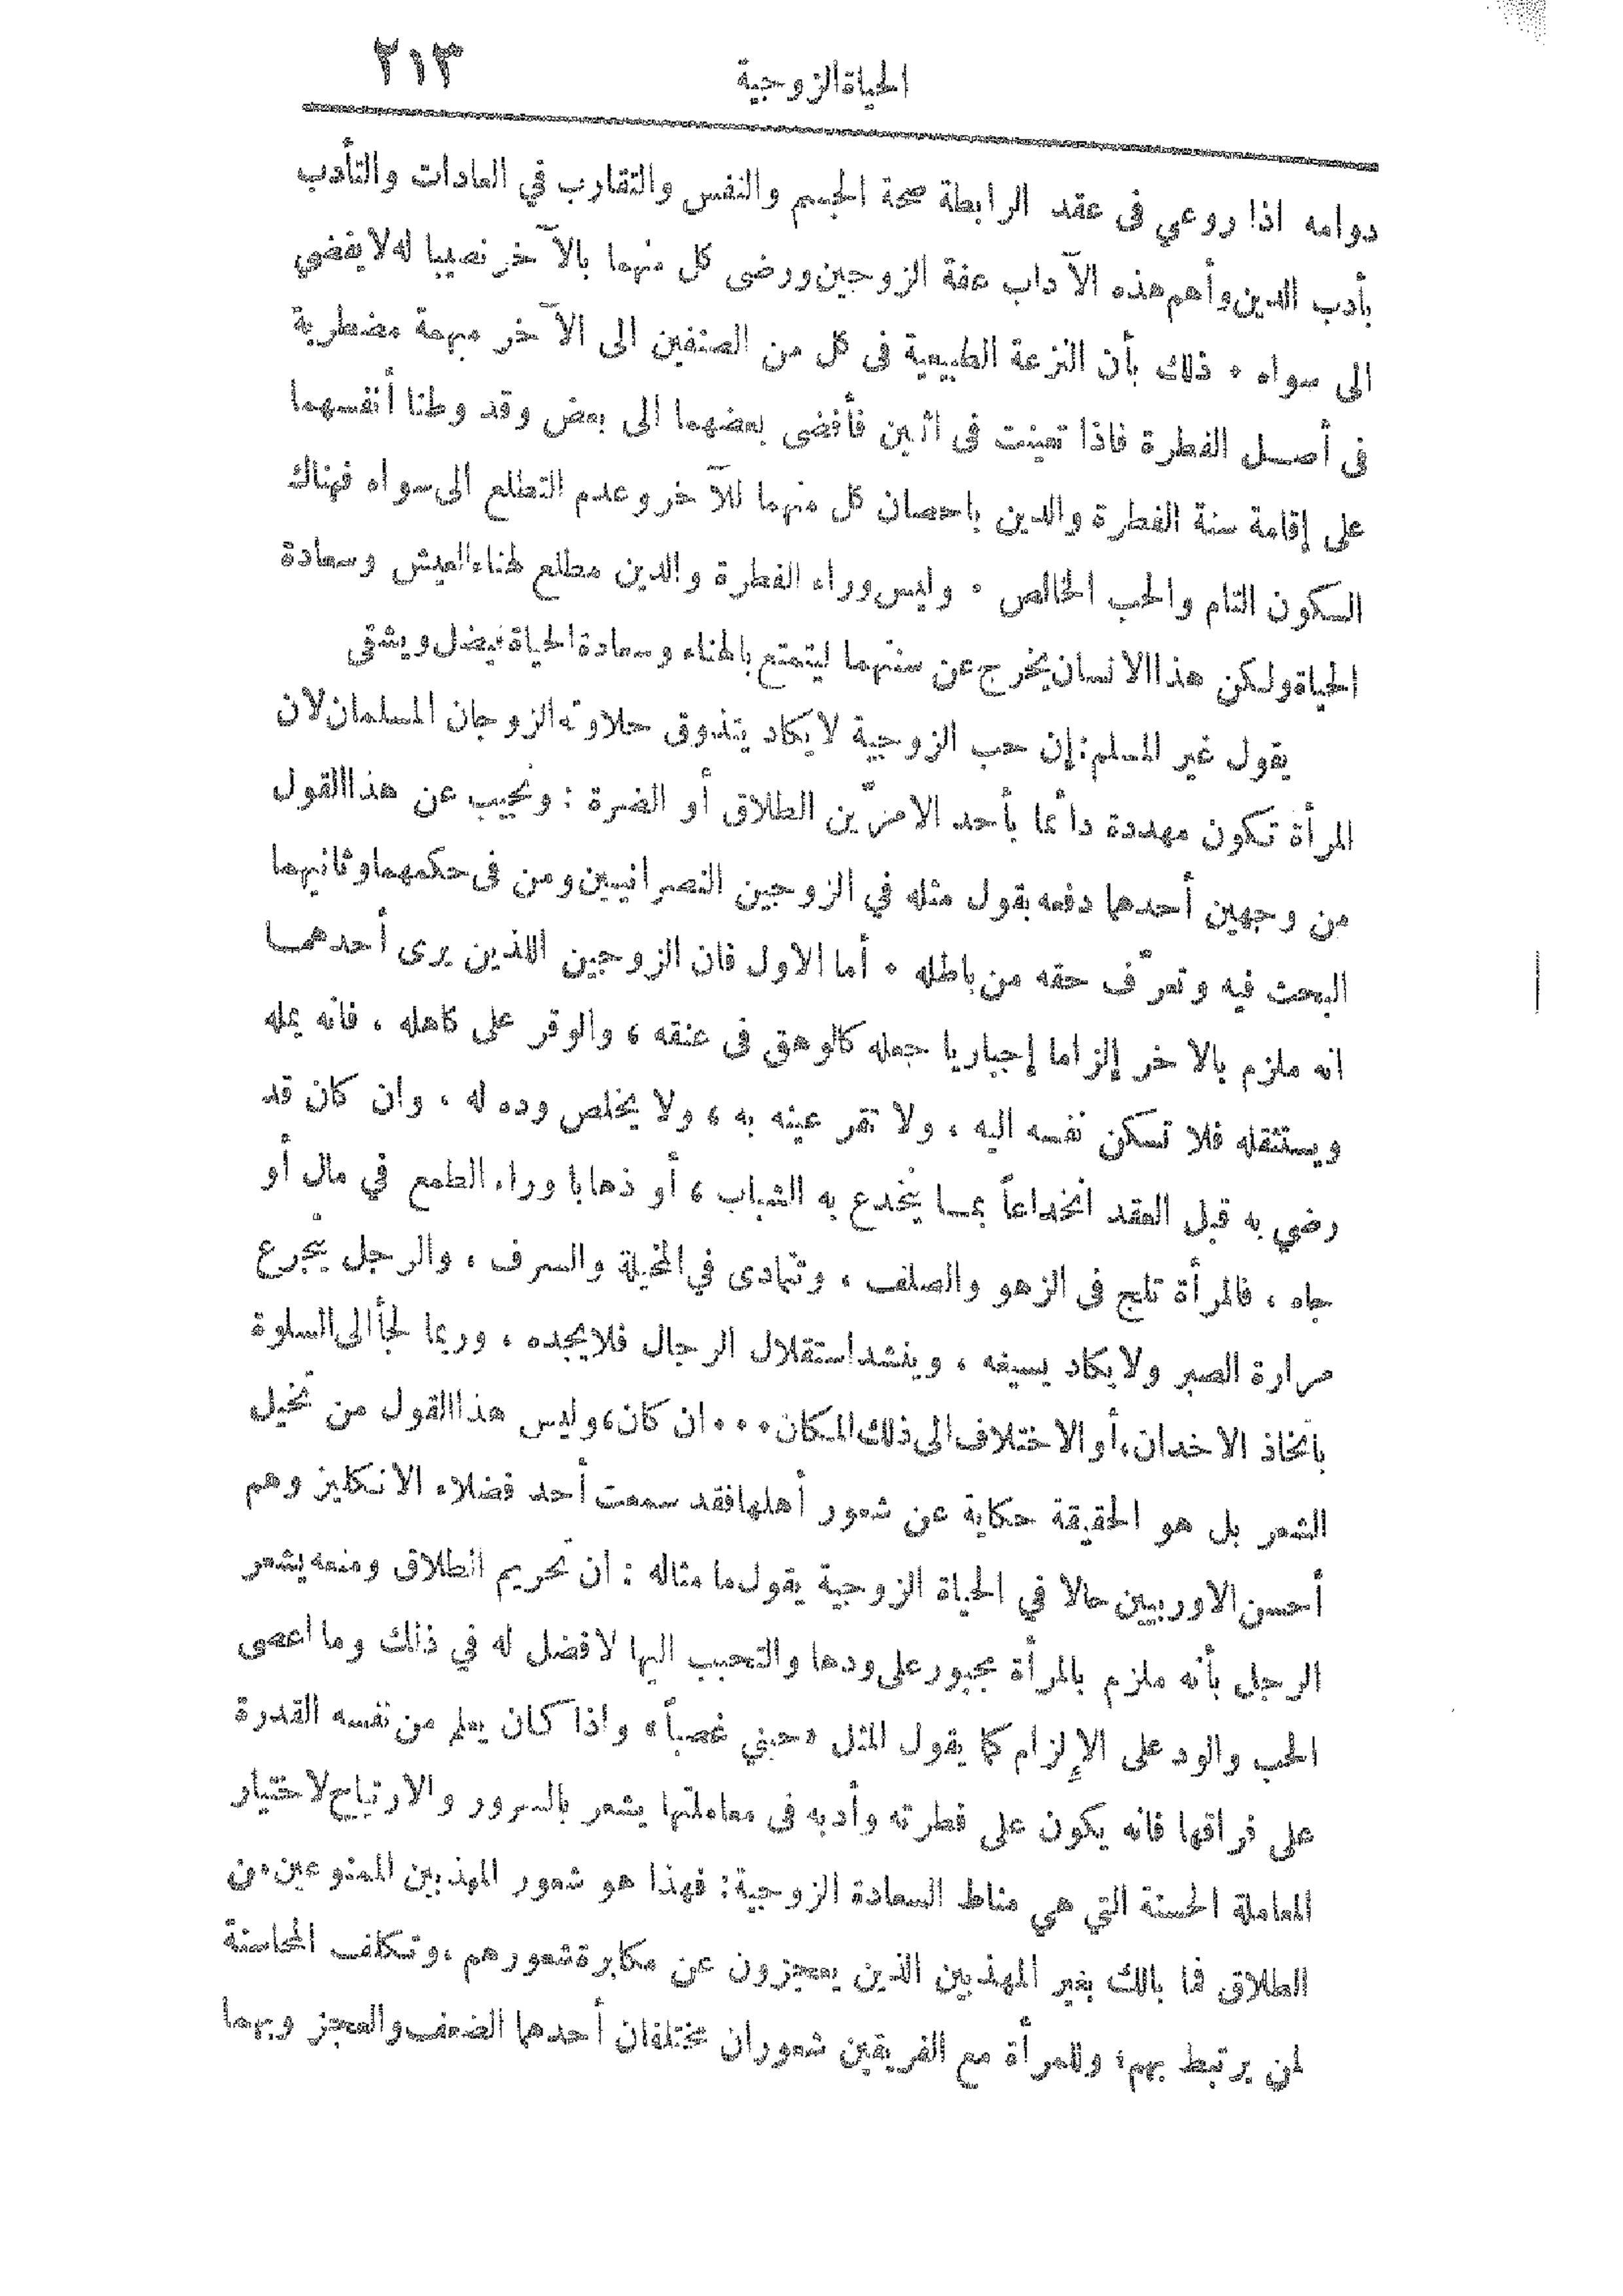 الحياة الزوجية ٢١٣
دوامه اذا روعي فى عقد الرابطة صحة الجسم والنفس والتقارب في العادات والتأدب
بأدب الدين وأهم هذه الآداب عفة الزوجين ورضى كل منهما بالآخر نصيبا له لا يفضي
الى سواه ٠ ذلك بأن النزعة الطبيعية فى كل من الصنفين الى الآخر مبهمة مضطربة
فى أصل الفطرة فاذا تعينت فى اثنين فأفضى بعضهما الى بعض وقد وطنا أنفسهما
على إقامة سنة الفطرة والدين باحصان كل منهما للآخر وعدم التطلع الى سواه فهناك
السكون التام والحب الخالص ٠ وليس وراء الفطرة والدين مطلع لهناء العيش وسعادة
الحياة ولكن هذا الانسان يخرج عن سنتهما ليتمتع بالهناء وسعادة الحياة فيضل ويشقى
يقول غير المسلم: إن حب الزوجية لا يكاد يتذوق حلاوته الزوجان المسلمان لان
المرأة تكون مهددة دائما بأحد الامرّين الطلاق أو الضرة : ونجيب عن هذا القول
من وجهين أحدهما دفعه بقول مثله في الزوجين النصرانيين ومن فى حكمهما وثانيهما
البحث فيه وتعرّف حقه من باطله ٠ أما الاول فان الزوجين اللذين يرى أحدهما
انه ملزم بالاخر إلزاما إجباريا جعله كالوهق فى عنقه ، والوقر على كاهله ، فانه يمله
ويستثقله فلا تسكن نفسه اليه ، ولا تقر عينه به ، ولا يخلص وده له ، وان كان قد
رضي به قبل العقد انخداعاً بما ينخدع به الشباب ، أو ذهابا وراء الطمع في مال أو
جاه ، فالمرأة تلج فى الزهو والصلف ، وتتمادى في المخيلة والسرف ، والرجل يتجرع
مرارة الصبر ولا يكاد يسيغه ، وينشد استقلال الرجال فلا يجده ، وربما لجأ الى السلوة
باتخاذ الاخدان، أو الاختلاف الى ذلك المكان٠٠٠ ان كان، وليس هذا القول من تخيل
الشعر بل هو الحقيقة حكاية عن شعور أهلها فقد سمعت أحد فضلاء الانكليز وهم
أحسن الاوربيين حالا في الحياة الزوجية يقول ما مثاله : ان تحريم الطلاق ومنعه يشعر
الرجل بأنه ملزم بالمرأة مجبور على ودها والتحبب اليها لا فضل له في ذلك وما اعصى
الحب والود على الإلزام كما يقول المثل «حبني غصباً» واذا كان يعلم من نفسه القدرة
على فراقها فانه يكون على فطرته وأدبه فى معاملتها يشعر بالسرور والارتياح لاختيار
المعاملة الحسنة التي هي مناط السعادة الزوجية: فهذا هو شعور المهذبين الممنوعين من
الطلاق فما بالك بغير المهذبين الذين يعجزون عن مكابرة شعورهم، وتكلف المحاسنة
لمن يرتبط بهم؛ وللمرأة مع الفريقين شعوران مختلفان أحدهما الضعف والعجز وبهما